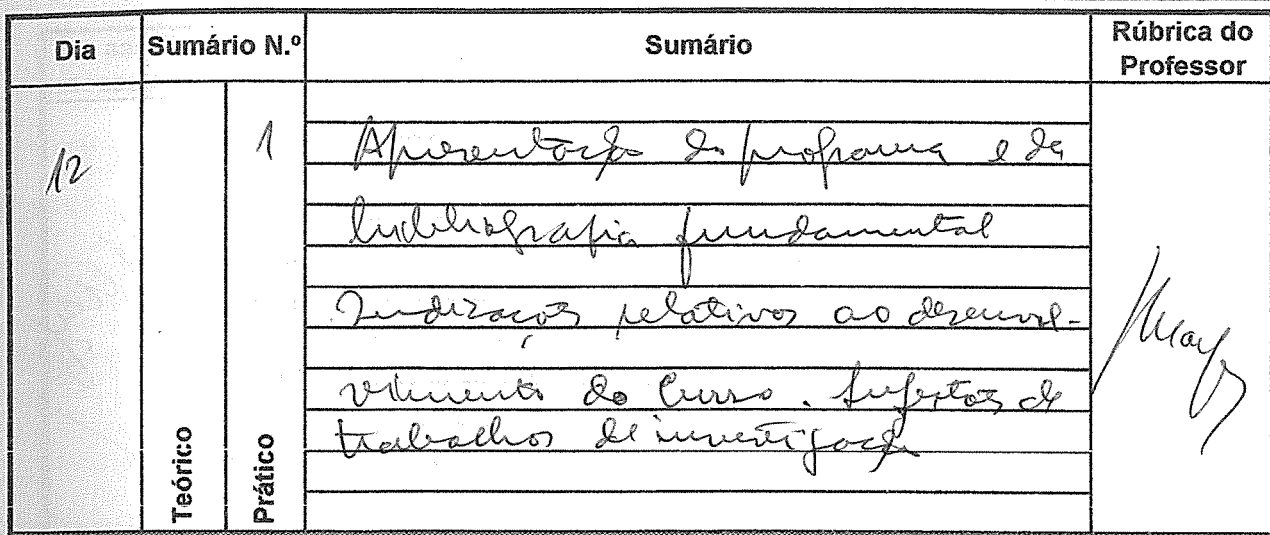 Dia Sumário N.º Sumário Rúbrica do Professor
12 1 Apresentação do programa e da
bibliografia fundamental
Indicações relativas ao desenvol-
vimento do Curso. Sugestões de
trabalhos de investigação
Teórico Prático